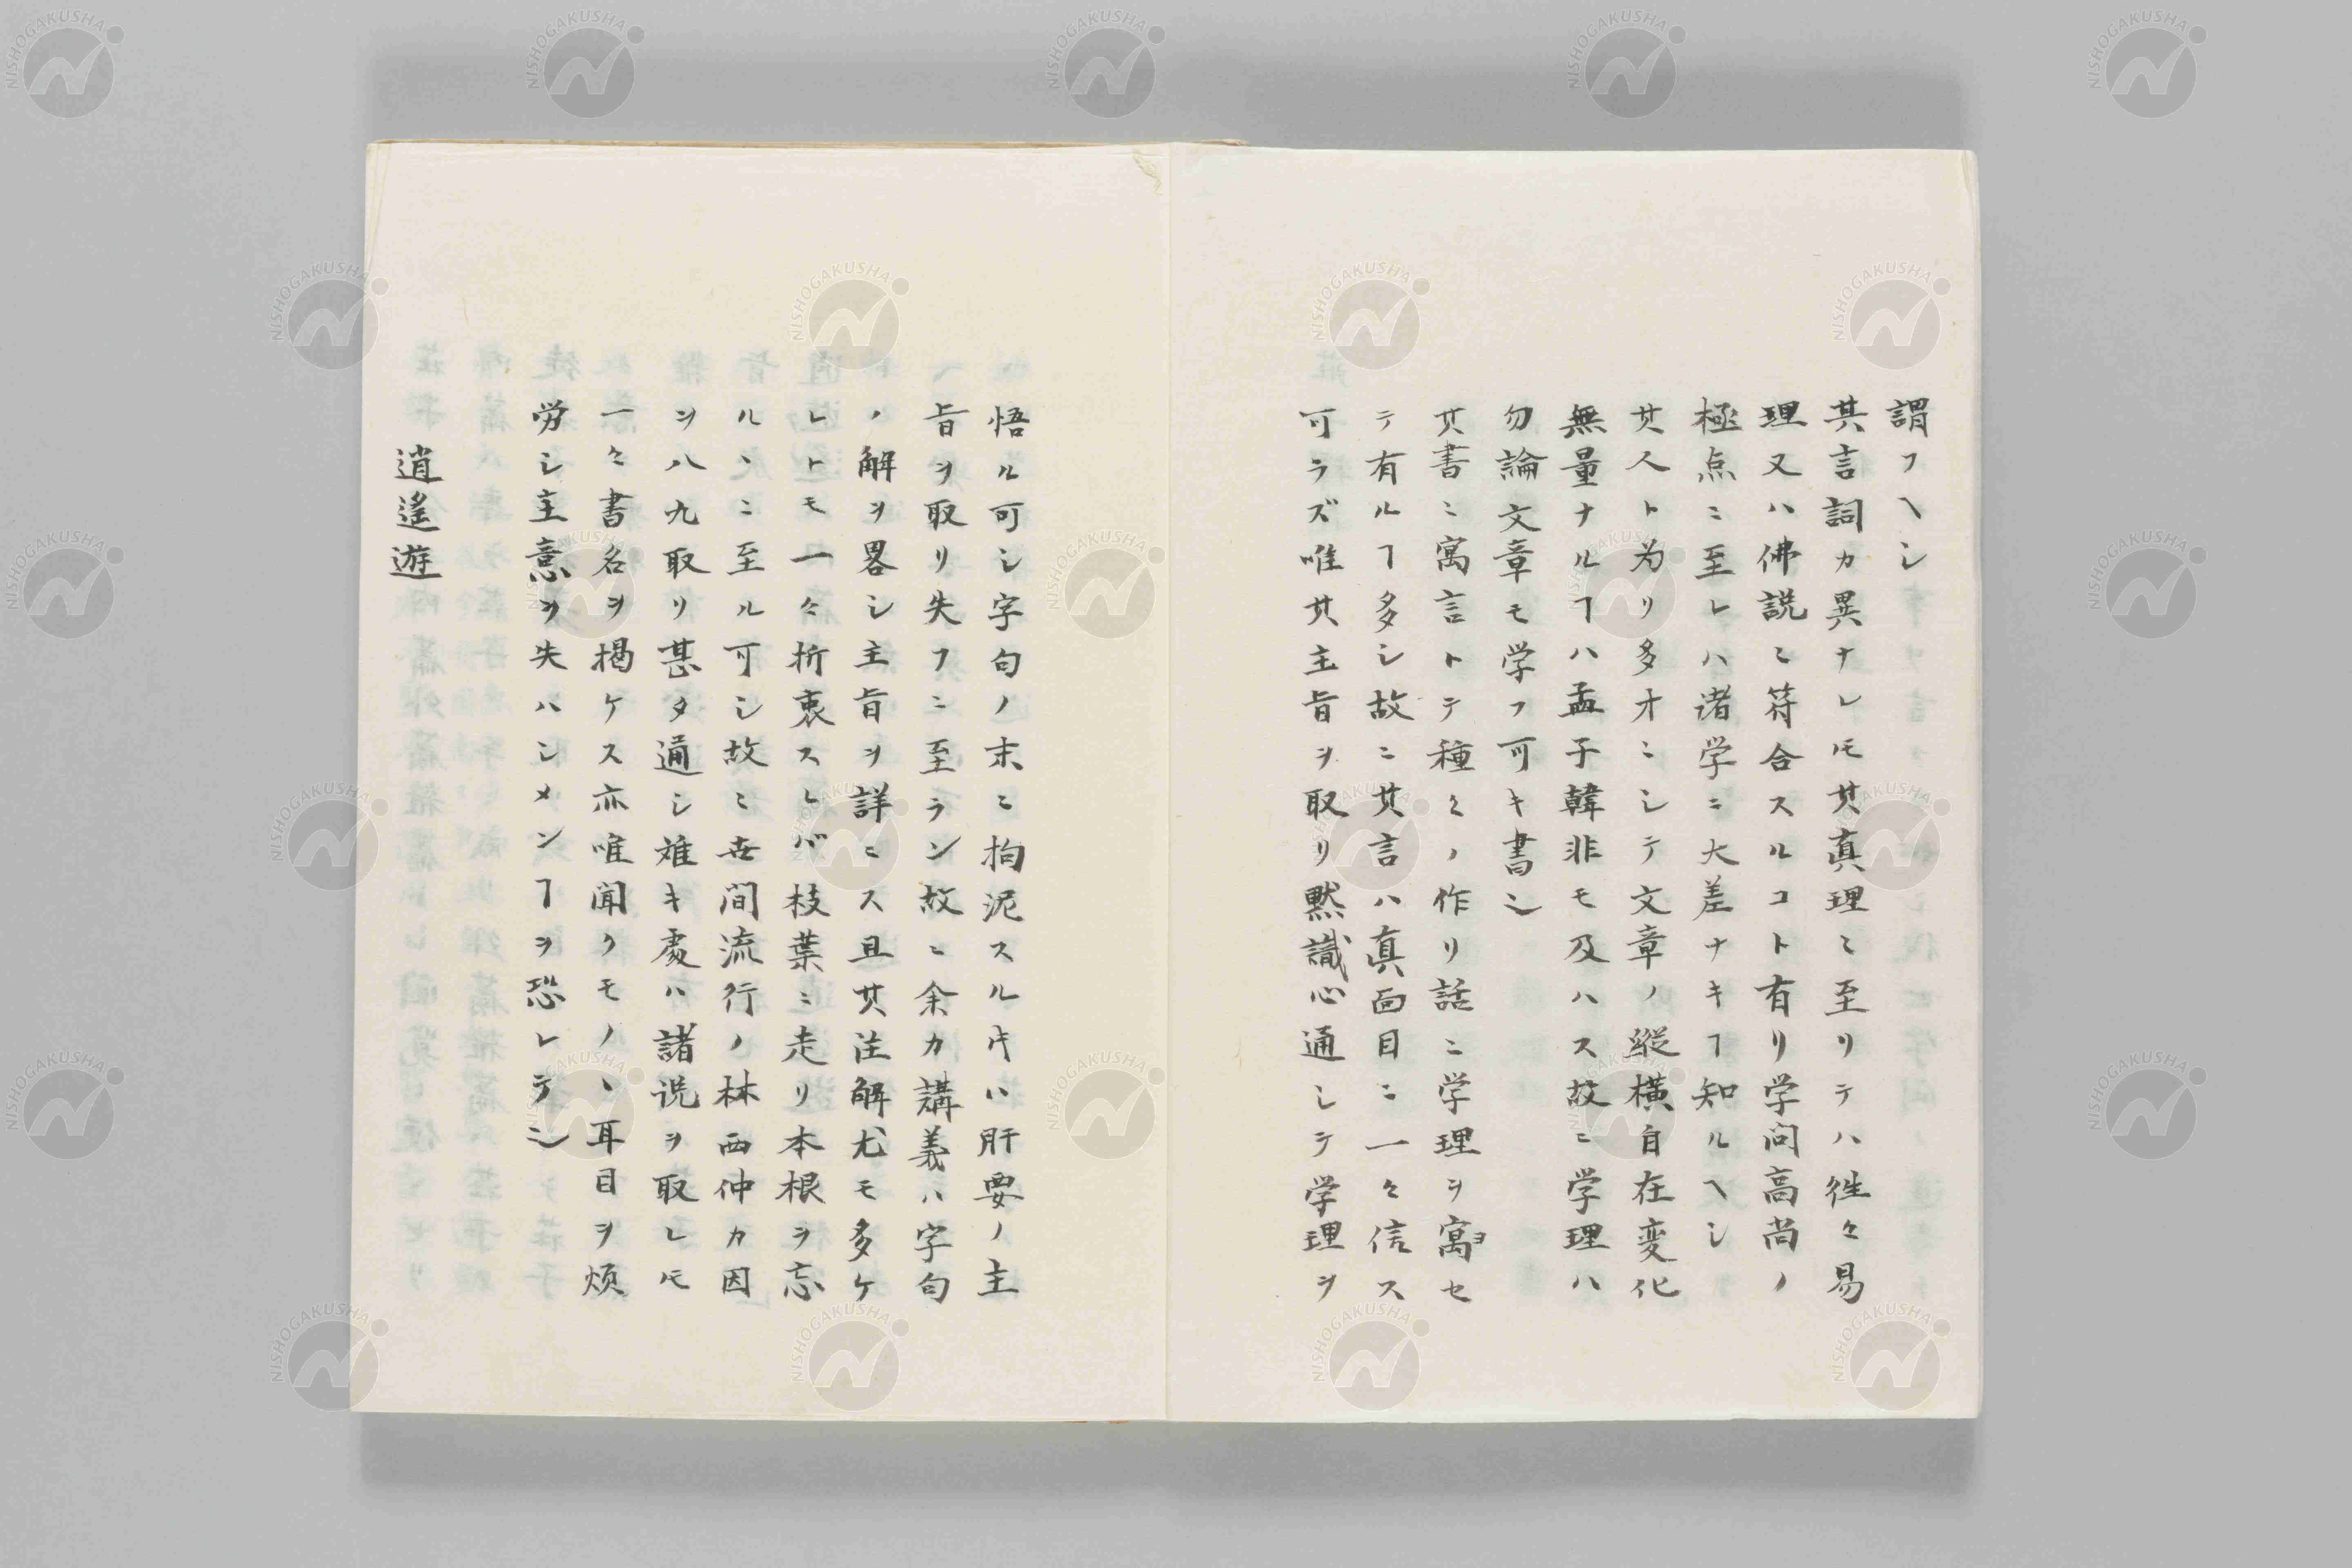 謂フヘシ
其言詞カ異ナレ𪜈其真理ニ至リテハ徃々易
理又ハ佛説ニ符合スルコト有リ学问高尚ノ
極点ニ至レハ诸学ニ大差ナキヿ知ルヘシ
其人ト为リ多才ニシテ文章ノ縦横自在変化
無量ナルヿハ孟子韓非モ及ハス故ニ学理ハ
勿論文章モ学フ可キ書ナリ
其書ニ寓言トテ種々ノ作リ話ニ学理ヲ寓ヨセ
テ有ルヿ多シ故ニ其言ハ真面目ニ一々信ス
可ラズ唯其主旨ヲ取リ黙識心通シテ学理ヲ
悟ル可シ字句ノ末ニ拘泥スル片ハ肝要ノ主
旨ヲ取リ失フニ至ラン故ニ余カ講義ハ字句
ノ解ヲ畧シ主旨ヲ詳ニス且其注解尤モ多ケ
レトモ一々折衷スレバ枝葉ニ走リ本根ヲ忘
ルヽニ至ル可シ故ニ世间流行ノ林西仲カ因
ヲ八九取リ甚タ通シ难キ処ハ諸说ヲ取レ𪜈
一々書名ヲ揭ケス亦唯聞クモノヽ耳目ヲ煩
労シ主意ヲ失ハシメンヿヲ恐レテナリ
逍遙遊